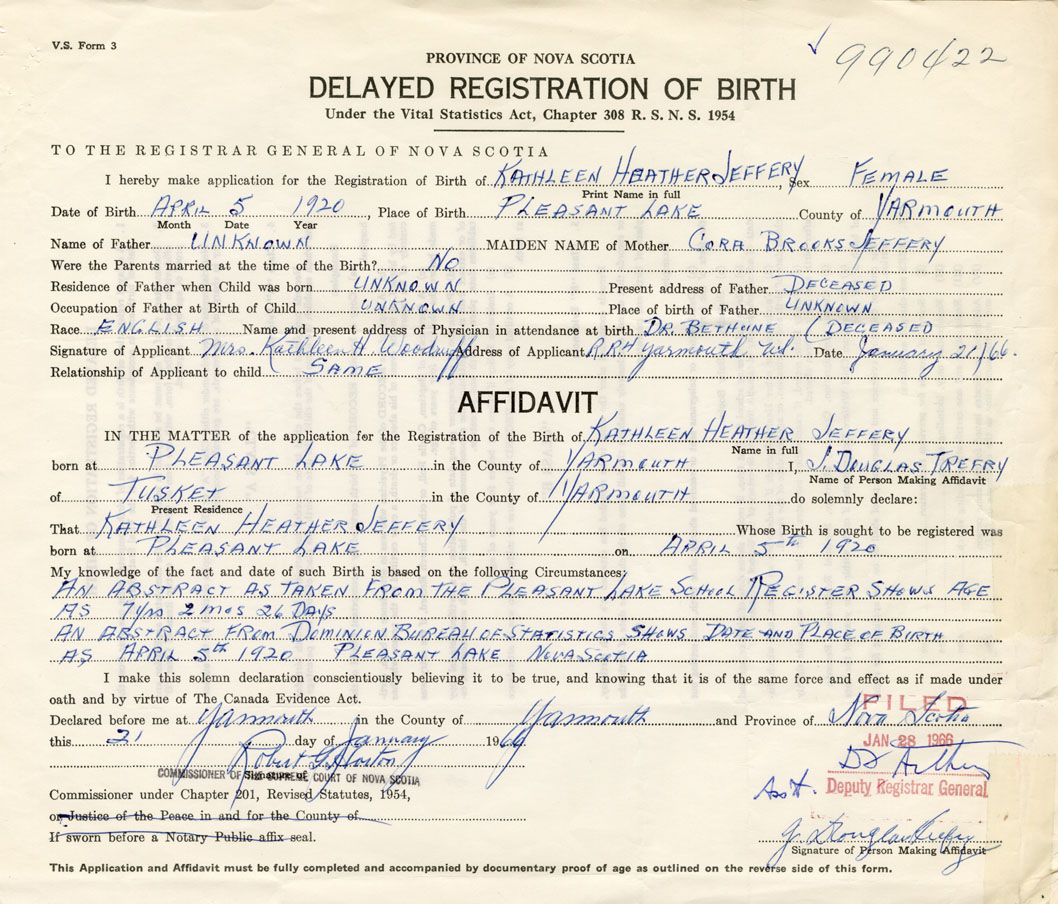 V.S. Form 3
990422
PROVINCE OF NOVA SCOTIA
DELAYED REGISTRATION OF BIRTH
Under the Vital Statistics Act, Chapter 308 R. S. N. S. 1954
TO THE REGISTRAR GENERAL OF NOVA SCOTIA
I hereby make application for the Registration of Birth of KATHLEEN HEATHER JEFFERY, Sex FEMALE
Print Name in full
Date of Birth APRIL 5 1920, Place of Birth PLEASANT LAKE County of YARMOUTH
Month Date Year
Name of Father UNKNOWN MAIDEN NAME of Mother CORA BROOKS JEFFERY
Were the Parents married at the time of the Birth? NO
Residence of Father when Child was born UNKNOWN Present address of Father DECEASED
Occupation of Father at Birth of Child UNKNOWN Place of birth of Father UNKNOWN
Race ENGLISH Name and present address of Physician in attendance at birth DR. BETHUNE (DECEASED
Signature of Applicant Mrs. Kathleen H. Woodruff Address of Applicant R.R.4 Yarmouth N.S. Date January 21/66.
Relationship of Applicant to child SAME
AFFIDAVIT
IN THE MATTER of the application for the Registration of the Birth of KATHLEEN HEATHER JEFFERY
Name in full
born at PLEASANT LAKE in the County of YARMOUTH I, J. DOUGLAS TREFRY
Name of Person Making Affidavit
of TUSKET in the County of YARMOUTH do solemnly declare:
Present Residence
That KATHLEEN HEATHER JEFFERY Whose Birth is sought to be registered was
born at PLEASANT LAKE on APRIL 5th 1920
My knowledge of the fact and date of such Birth is based on the following Circumstances:
AN ABSTRACT AS TAKEN FROM THE PLEASANT LAKE SCHOOL REGISTER SHOWS AGE
AS 7 yrs 2 mos 26 DAYS
AN ABSTRACT FROM DOMINION BUREAU OF STATISTICS SHOWS DATE AND PLACE OF BIRTH
AS APRIL 5th 1920 PLEASANT LAKE NOVA SCOTIA
I make this solemn declaration conscientiously believing it to be true, and knowing that it is of the same force and effect as if made under
oath and by virtue of The Canada Evidence Act.
FILED
Declared before me at Yarmouth in the County of Yarmouth and Province of Nova Scotia
this 21 day of January 1966
JAN 28 1966
Robert G.
COMMISSIONER OF THE SUPREME COURT OF NOVA SCOTIA
Signature of
Asst. Deputy Registrar General
Commissioner under Chapter 201, Revised Statutes, 1954,
or Justice of the Peace in and for the County of
If sworn before a Notary Public affix seal.
J Douglas Trefry
Signature of Person Making Affidavit
This Application and Affidavit must be fully completed and accompanied by documentary proof of age as outlined on the reverse side of this form.